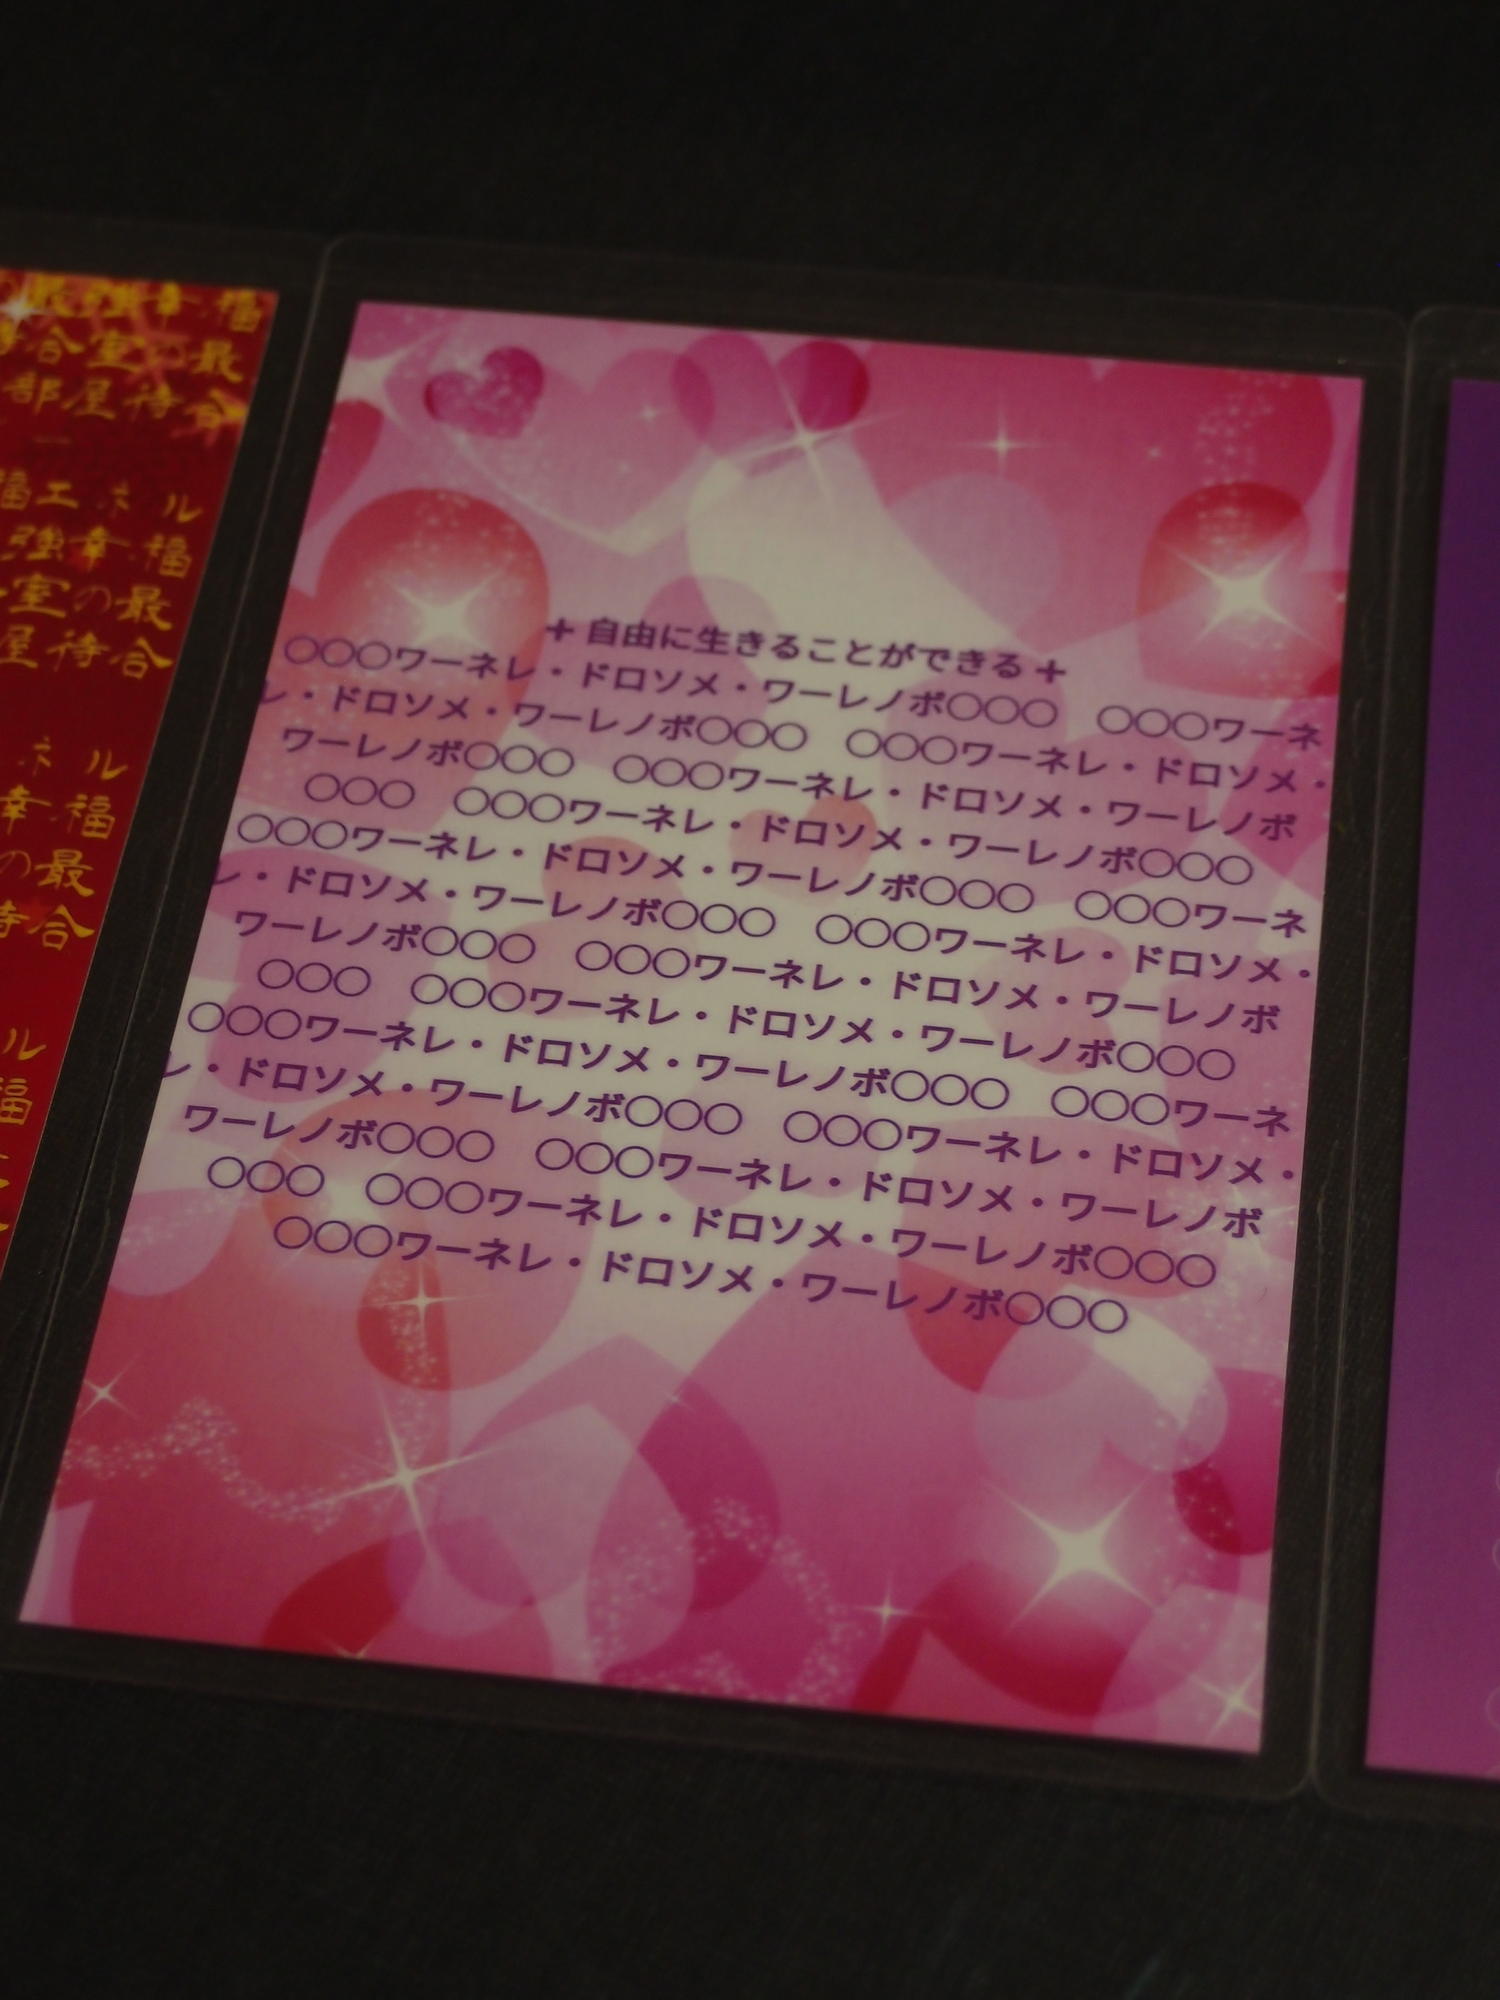 ＋ 自由に生きることができる ＋
○○○ワーネレ・ドロソメ・ワーレノボ○○○　○○○ワーネ
レ・ドロソメ・ワーレノボ○○○　○○○ワーネレ・ドロソメ・
ワーレノボ○○○　○○○ワーネレ・ドロソメ・ワーレノボ
○○○　○○○ワーネレ・ドロソメ・ワーレノボ○○○
○○○ワーネレ・ドロソメ・ワーレノボ○○○　○○○ワーネ
レ・ドロソメ・ワーレノボ○○○　○○○ワーネレ・ドロソメ・
ワーレノボ○○○　○○○ワーネレ・ドロソメ・ワーレノボ
○○○　○○○ワーネレ・ドロソメ・ワーレノボ○○○
○○○ワーネレ・ドロソメ・ワーレノボ○○○　○○○ワーネ
レ・ドロソメ・ワーレノボ○○○　○○○ワーネレ・ドロソメ・
ワーレノボ○○○　○○○ワーネレ・ドロソメ・ワーレノボ
○○○　○○○ワーネレ・ドロソメ・ワーレノボ○○○
○○○ワーネレ・ドロソメ・ワーレノボ○○○
の最強幸福
待合室の最
部屋待合
福エネル
強幸福
室の最
屋待合
ネル
幸福
の最
待合
ル
福